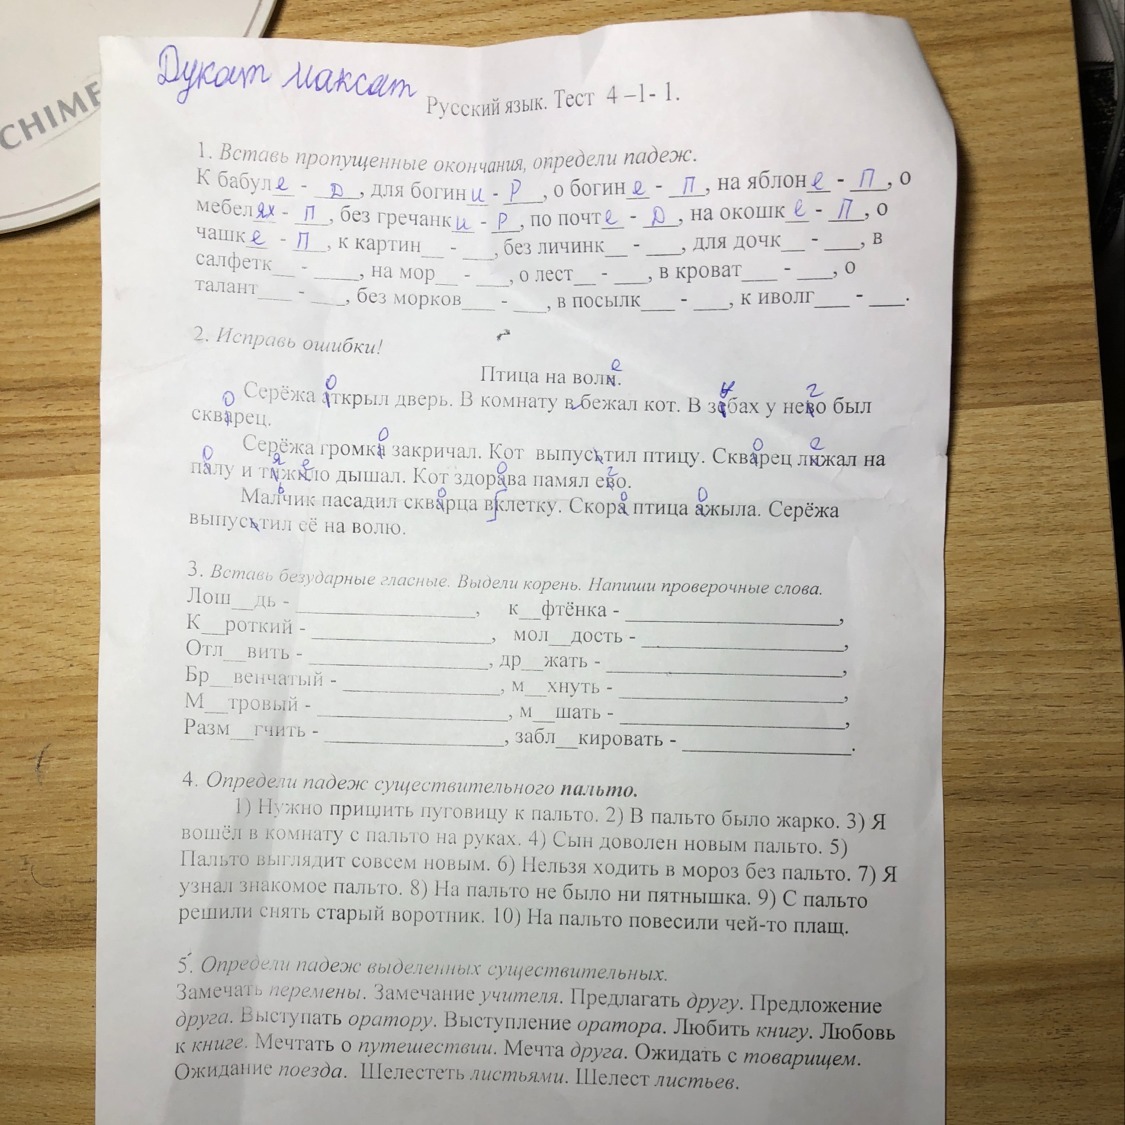 CHIME
Дукат Максат
Русский язык. Тест 4 –1- 1.
1. Вставь пропущенные окончания, определи падеж.
К бабул е - Д, для богин и - Р, о богин е - П, на яблон е - П, о
мебел ях - П, без гречанк и - Р, по почт е - Д, на окошк е - П, о
чашк е - П, к картин__ - ___, без личинк__ - ___, для дочк__ - ___, в
салфетк__ - ____, на мор__ - ___, о лест__ - ___, в кроват___ - ___, о
талант___ - ___, без морков___ - ___, в посылк___ - ___, к иволг___ - ___.
2. Исправь ошибки!
Птица на воли.
Серёжа аткрыл дверь. В комнату в бежал кот. В зобах у нево был
скварец.
Серёжа громка закричал. Кот выпусьтил птицу. Скварец лижал на
палу и тижило дышал. Кот здорава памял ево.
Малчик пасадил скварца вклетку. Скора птица ажыла. Серёжа
выпусьтил её на волю.
3. Вставь безударные гласные. Выдели корень. Напиши проверочные слова.
Лош__дь - ________________, к__фтёнка - ___________________,
К__роткий - ________________, мол__дость - __________________,
Отл__вить - ________________, др__жать - _____________________,
Бр__венчатый - ______________, м__хнуть - ____________________,
М__тровый - _________________, м__шать - ____________________,
Разм__гчить - ________________, забл__кировать - _______________.
4. Определи падеж существительного пальто.
1) Нужно пришить пуговицу к пальто. 2) В пальто было жарко. 3) Я
вошёл в комнату с пальто на руках. 4) Сын доволен новым пальто. 5)
Пальто выглядит совсем новым. 6) Нельзя ходить в мороз без пальто. 7) Я
узнал знакомое пальто. 8) На пальто не было ни пятнышка. 9) С пальто
решили снять старый воротник. 10) На пальто повесили чей-то плащ.
5. Определи падеж выделенных существительных.
Замечать перемены. Замечание учителя. Предлагать другу. Предложение
друга. Выступать оратору. Выступление оратора. Любить книгу. Любовь
к книге. Мечтать о путешествии. Мечта друга. Ожидать с товарищем.
Ожидание поезда. Шелестеть листьями. Шелест листьев.